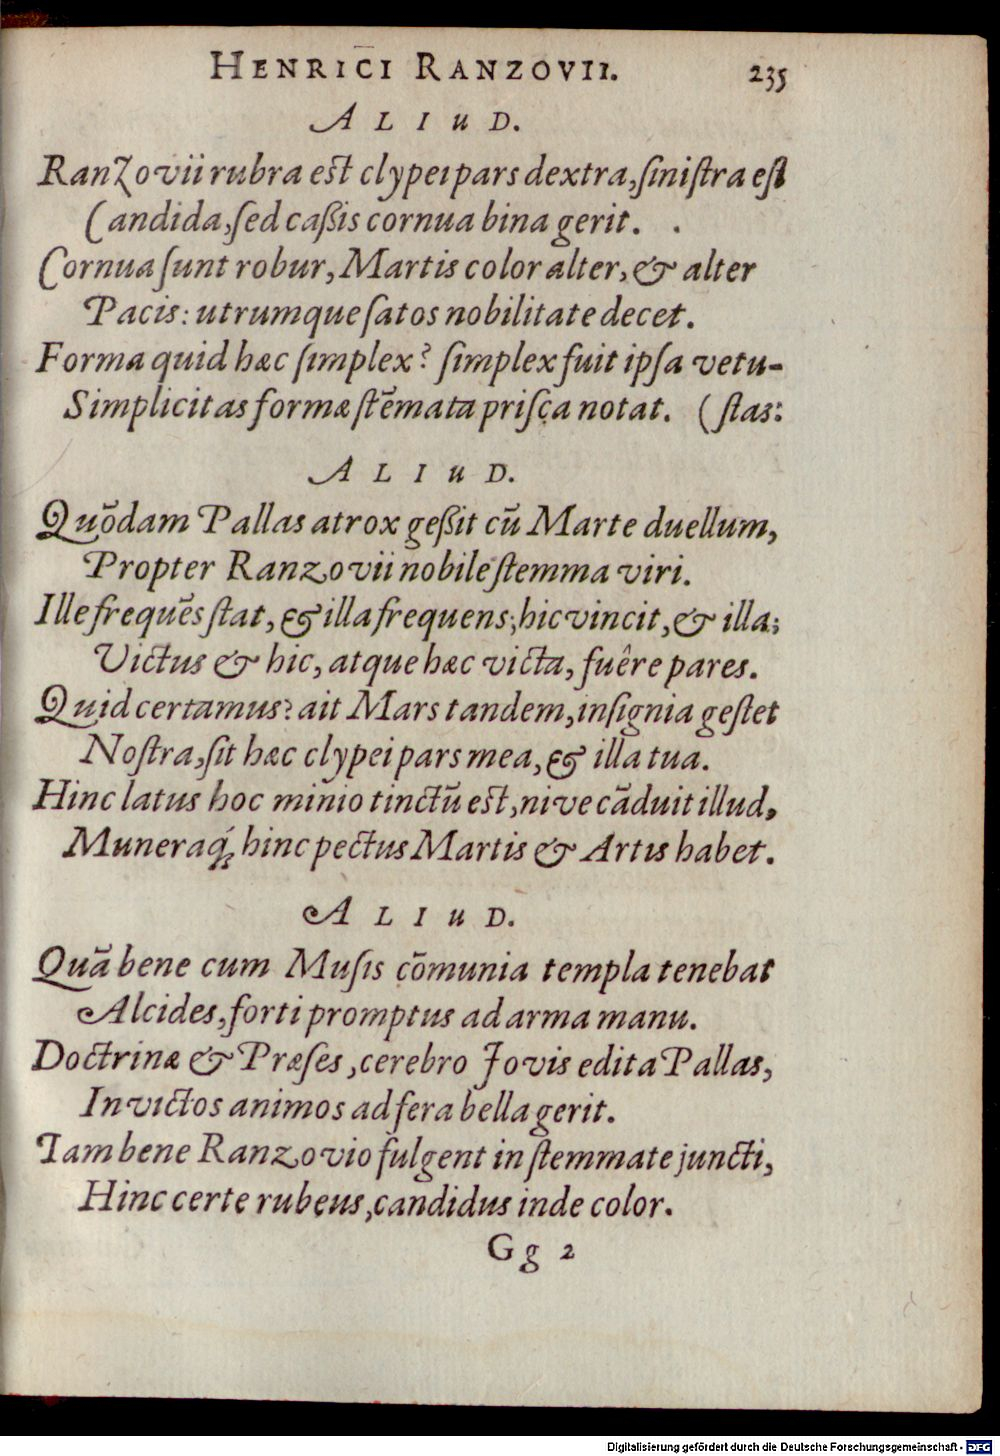 HENRICI RANZOVII. 235
ALIUD.
Ranzovii rubra est clypei pars dextra, ſiniſtra eſt
Candida, ſed caßis cornua bina gerit.
Cornua ſunt robur, Martis color alter, & alter
Pacis: utrumque ſatos nobilitate decet.
Forma quid hæc ſimplex? ſimplex fuit ipſa vetu-
Simplicitas formæ ſtēmata priſca notat. (ſtas:
ALIUD.
Quōdam Pallas atrox geßit cū Marte duellum,
Propter Ranzovii nobile ſtemma viri.
Ille frequēs ſtat, & illa frequens; hic vincit, & illa;
Victus & hic, atque hæc victa, fuêre pares.
Quid certamus? ait Mars tandem, inſignia geſtet
Noſtra, ſit hæc clypei pars mea, & illa tua.
Hinc latus hoc minio tinctū est, nive cāduit illud,
Muneraq́; hinc pectus Martis & Artis habet.
ALIUD.
Quā bene cum Muſis cōmunia templa tenebat
Alcides, forti promptus ad arma manu.
Doctrinæ & Præſes, cerebro Jovis edita Pallas,
Invictos animos ad fera bella gerit.
Tam bene Ranzovio fulgent in ſtemmate juncti,
Hinc certe rubeus, candidus inde color.
Gg 2
Digitalisierung gefördert durch die Deutsche Forschungsgemeinschaft - DFG